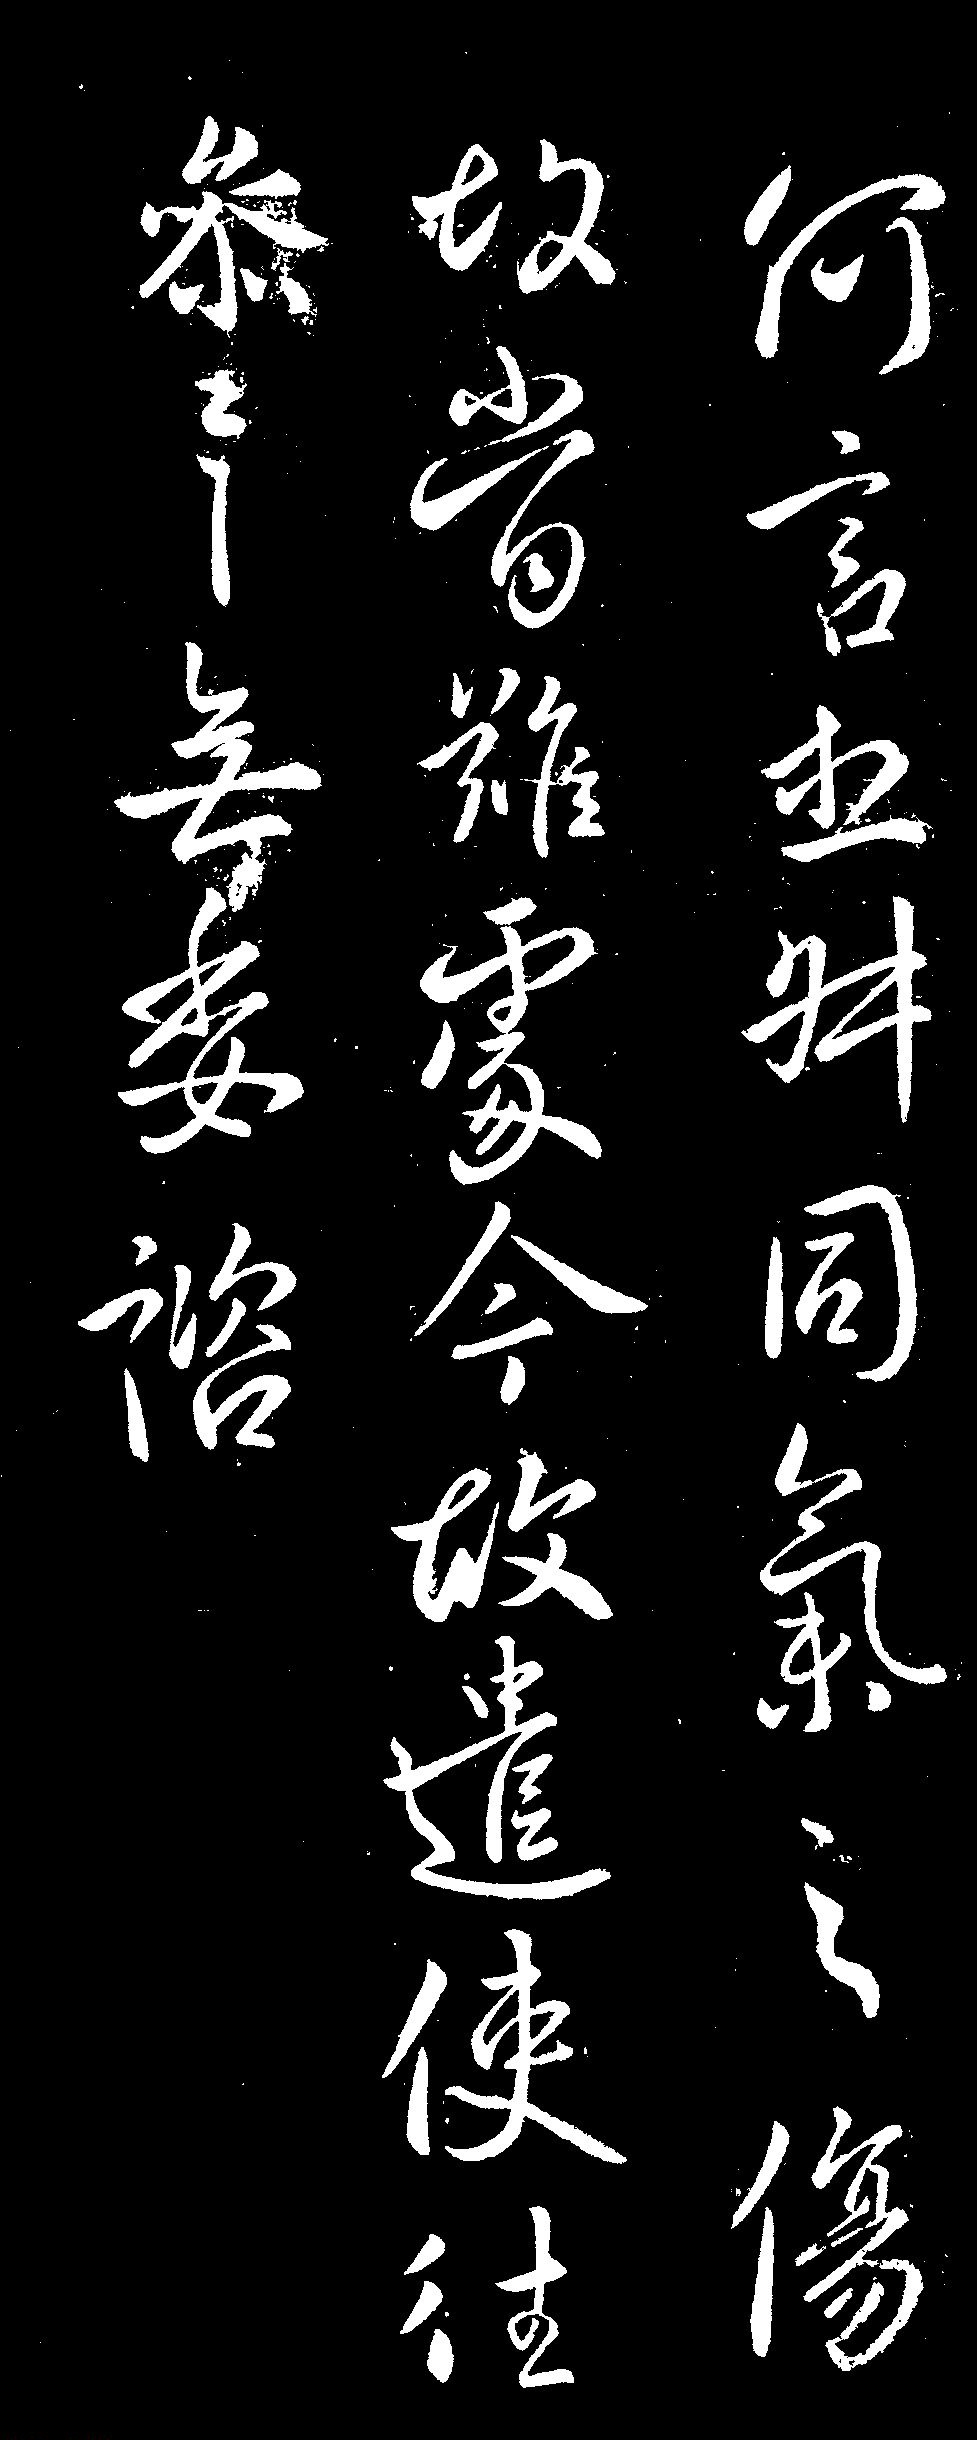 何言並舛同氣之傷
故當難處今故遣使往
參無委諮